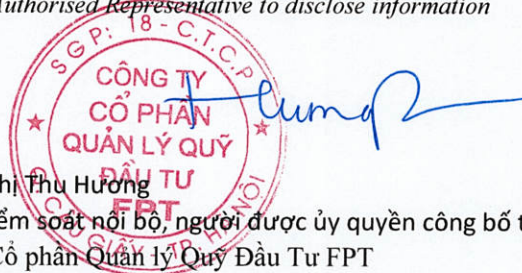 Authorised Representative to disclose information
SGP: 18 - C.T.C.P
CÔNG TY
CỔ PHẦN
QUẢN LÝ QUỸ
ĐẦU TƯ
FPT
Q. CẦU GIẤY - TP. HÀ NỘI
hị Thu Hương
ểm soát nội bộ, người được ủy quyền công bố t
Cổ phần Quản lý Quỹ Đầu Tư FPT